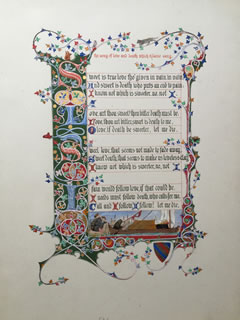 The song of love and death which Elaine
Sweet is true love tho given in vain, in vain
And sweet is death who puts an end to pain
I know not which is sweeter, no, not I
Love, art thou sweet? then bitter death must be:
Love, thou art bitter; sweet is death to me.
O love if death be sweeter, let me die.
Sweet love, that seems not made to fade away,
Sweet death, that seems to make us loveless clay,
I know not which is sweeter, no, not I.
I fain would follow love, if that could be;
I needs must follow death, who calls for me
Call and I follow, I follow! let me die.